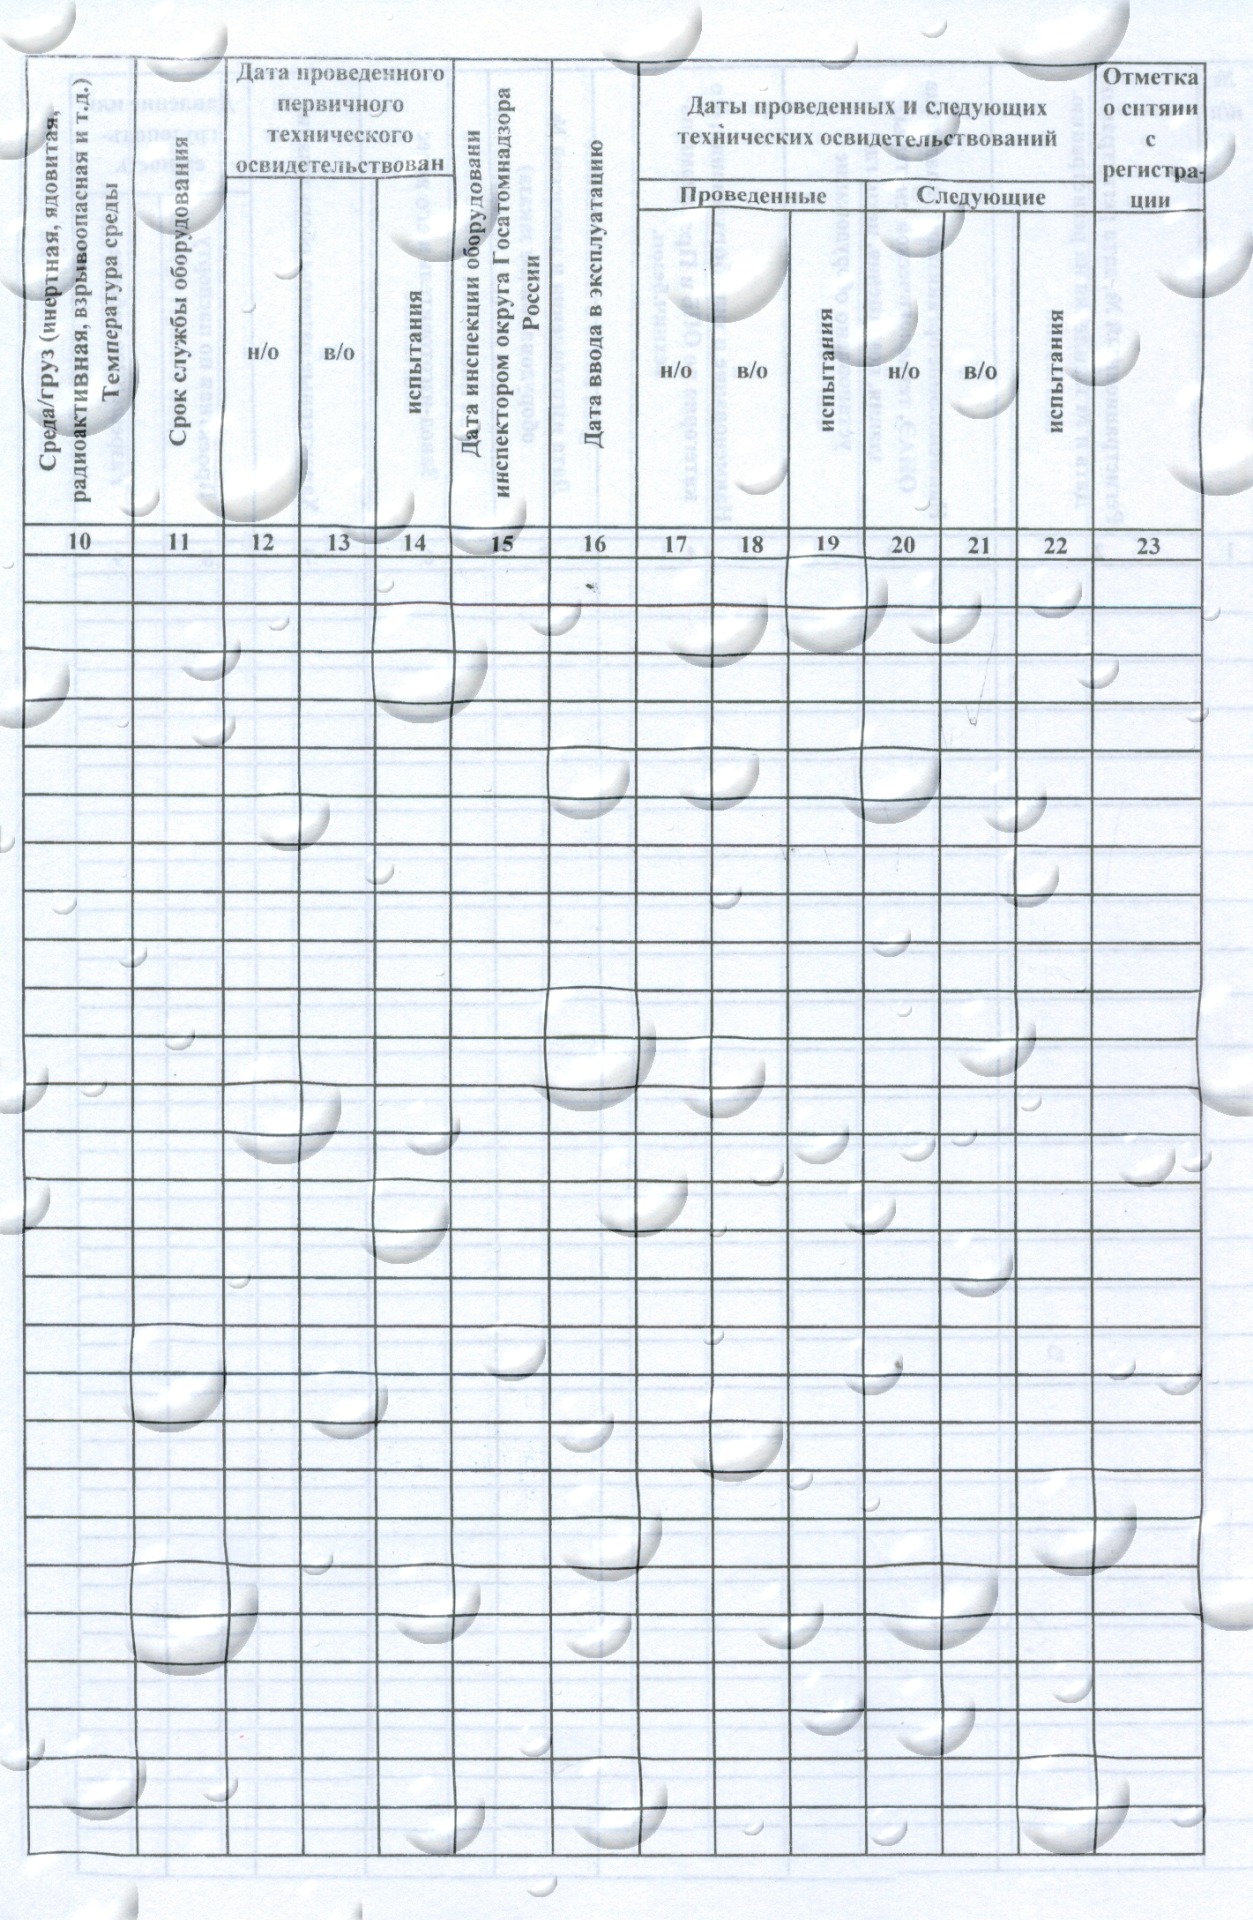 Среда/груз (инертная, ядовитая,
радиоактивная, взрывоопасная и т.д.)
Температура среды
Срок службы оборудования
Дата проведенного
первичного
технического
освидетельствован
н/о
в/о
испытания
Дата инспекции оборудовани
инспектором округа Госатомнадзора
России
Дата ввода в эксплуатацию
Даты проведенных и следующих
технических освидетельствований
Проведенные
н/о
в/о
испытания
Следующие
н/о
в/о
испытания
Отметка
о снтяии
с
регистра-
ции
10 11 12 13 14 15 16 17 18 19 20 21 22 23